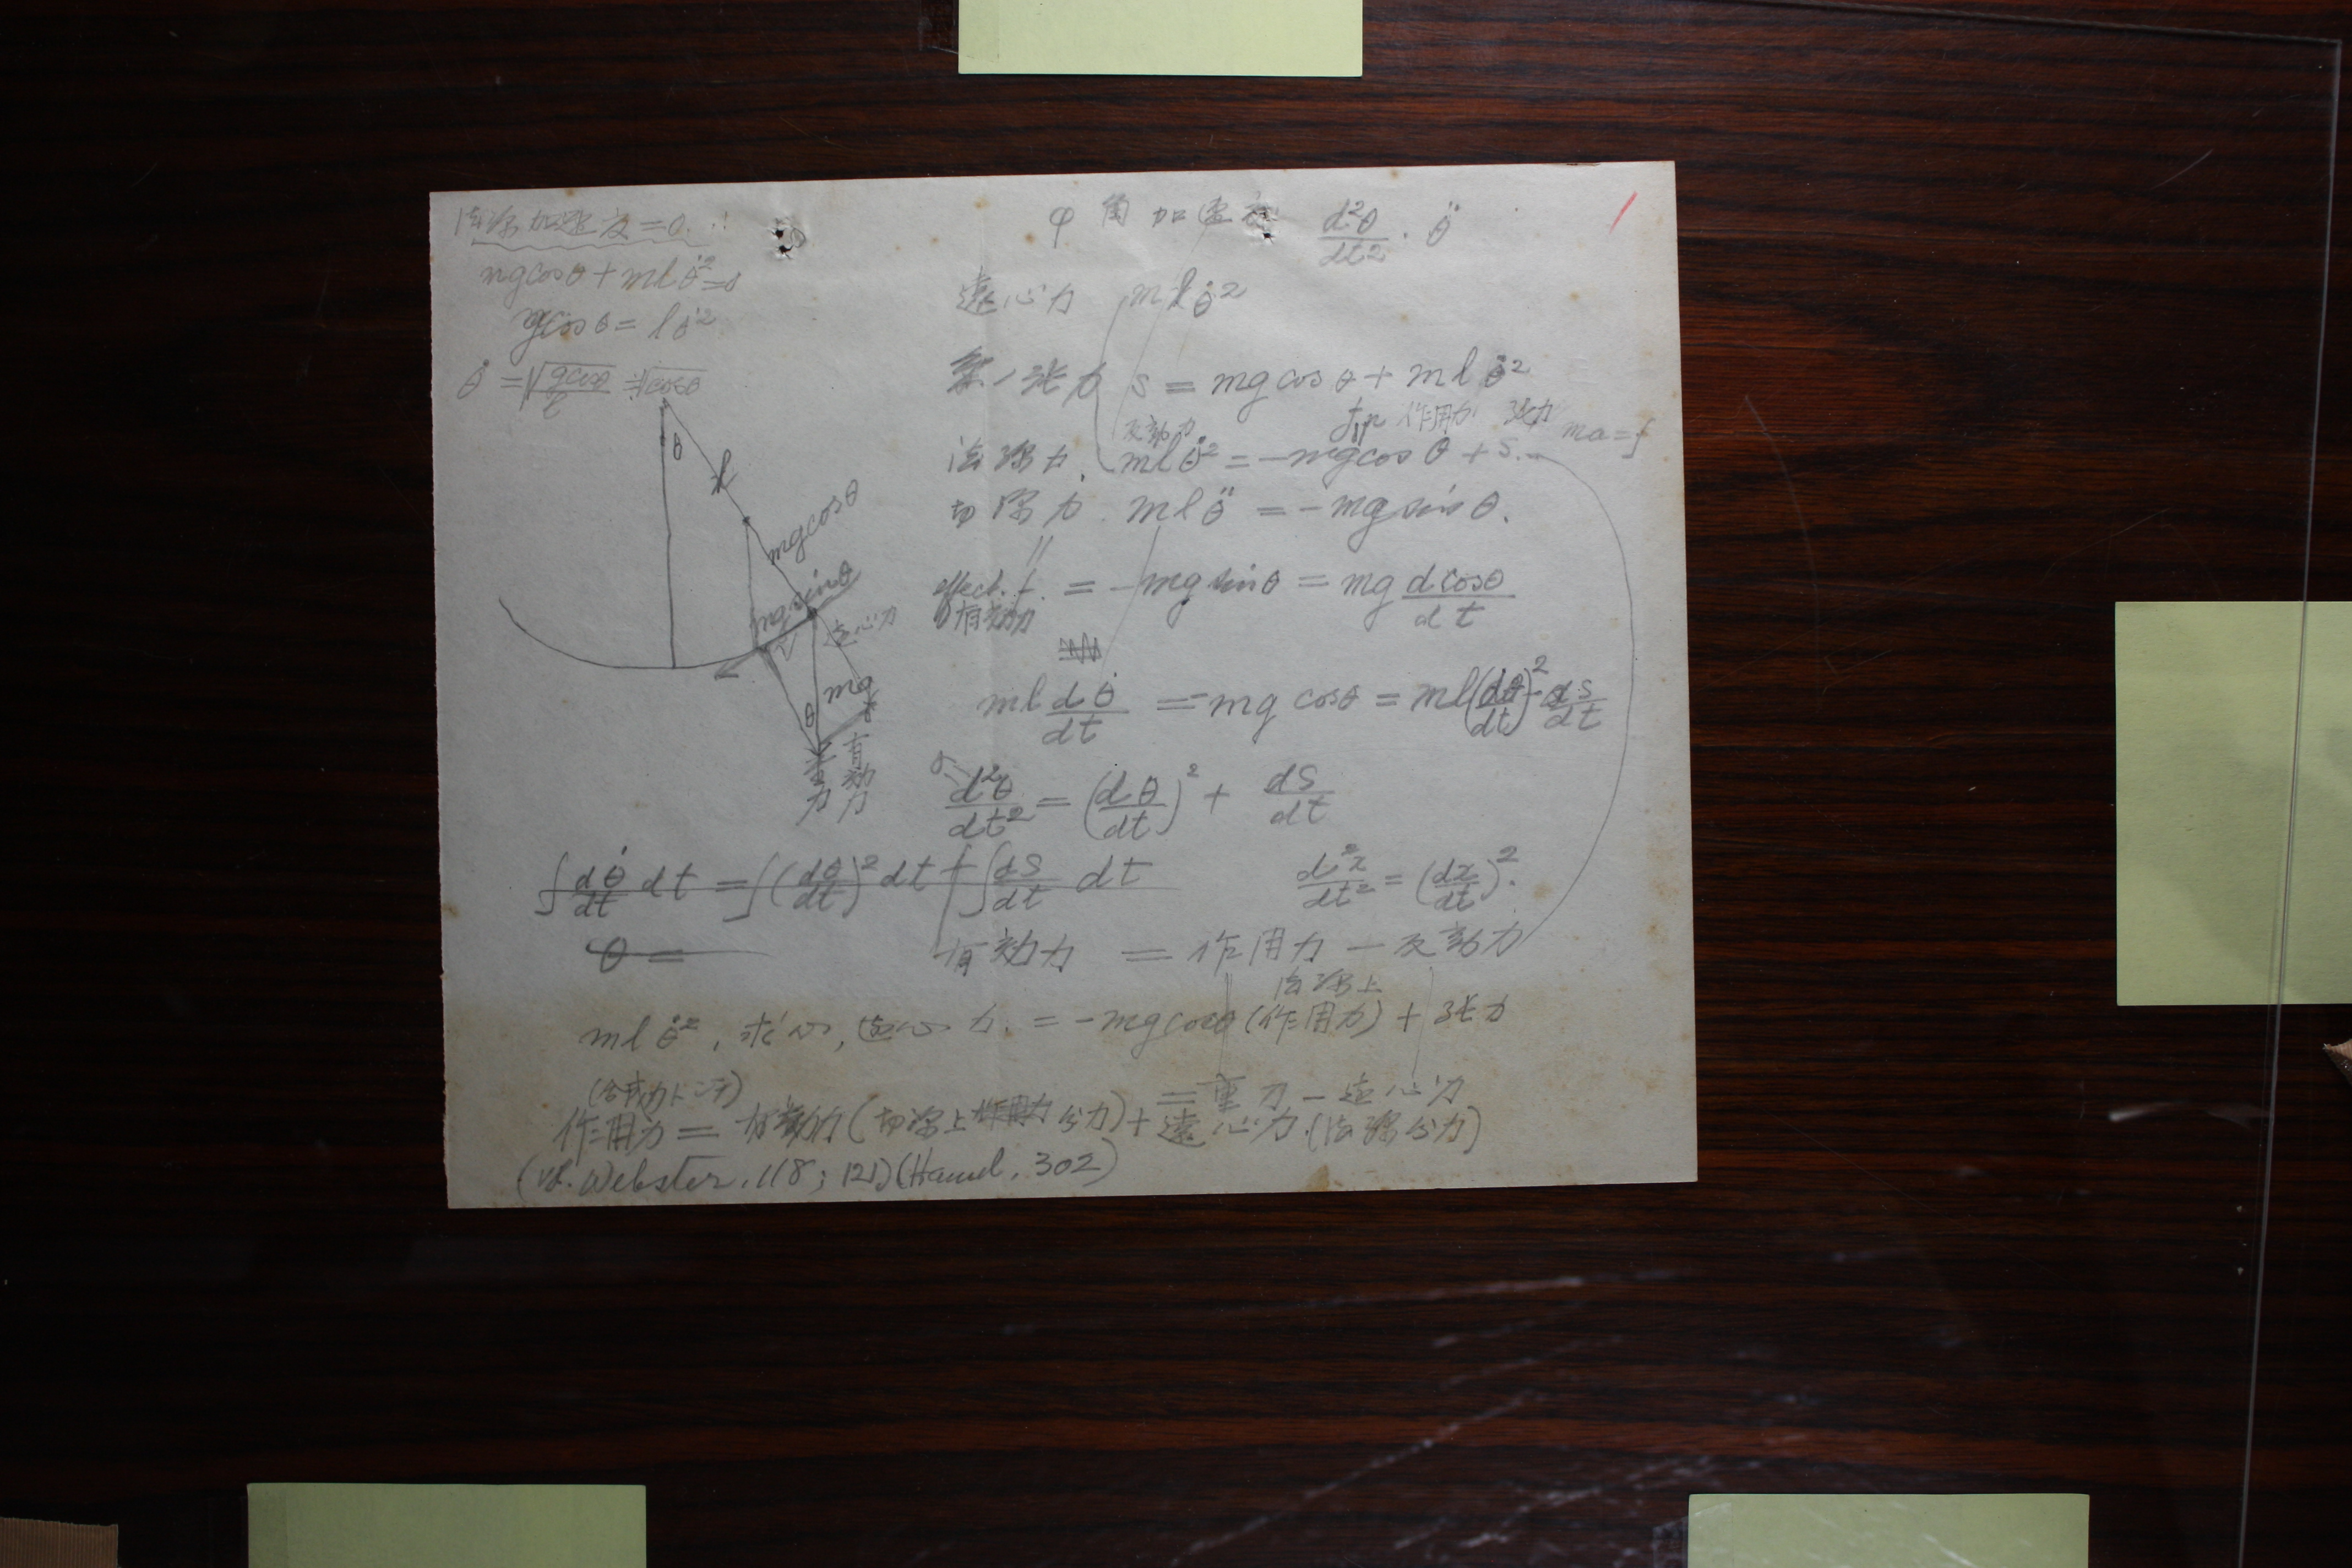 法線加速度=0.
mgcosθ+mlθ̇²=0
gcosθ=lθ̇²
θ̇=√(gcosθ/l) = √cosθ
θ
l
mgcosθ
mgsinθ
遠心力
mg
θ
重力
有効力
φ 角加速度 d²θ/dt² . θ̈
遠心力 mlθ̇²
糸ノ張力 S = mgcosθ + mlθ̇²
反動力 作用力 張力 ma=f
法線力. mlθ̇² = -mgcosθ + S.
切線力. mlθ̈ = -mgsinθ.
effect. f. = -mgsinθ = mg dcosθ/dt
有効力
ml dθ̇/dt = -mg cosθ = ml(dθ/dt)² - dS/dt
d²θ/dt² = (dθ/dt)² + dS/dt
∫dθ̇/dt dt = ∫(dθ/dt)² dt + ∫dS/dt dt
d²x/dt² = (dx/dt)².
θ =
有効力 = 作用力 - 反動力
法線上
mlθ̇², 求心, 遠心力. = -mgcosθ (作用力) + 張力
= 重力 - 遠心力
作用力 = 有効力 (切線上 作用力 分力) + 遠心力. (法線分力)
(vgl. Webster. 118; 121) (Hamel. 302)